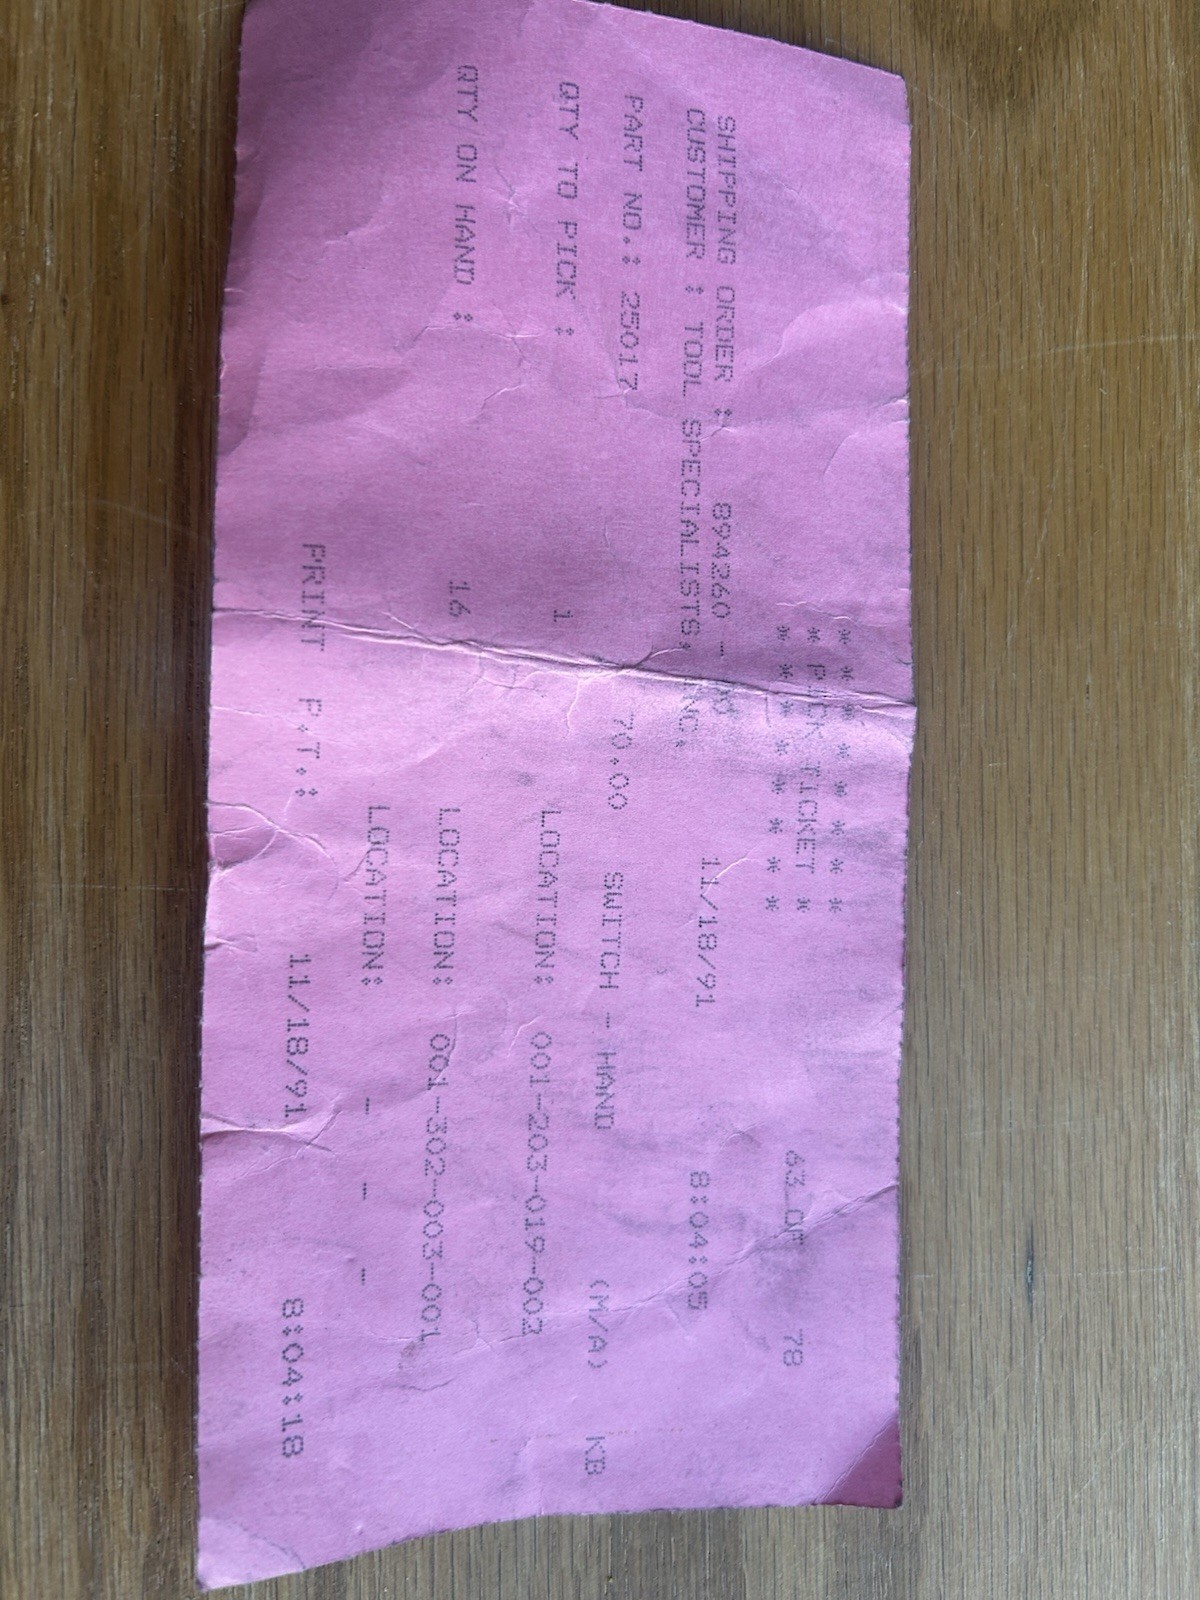 * * * * * * * *
* PICK TICKET *
* * * * * * * * 63 OF 78
SHIPPING ORDER : 894260 - 11/18/91 8:04:05
CUSTOMER : TOOL SPECIALISTS, INC.
PART NO.: 25017 70.00 SWITCH - HAND (M/A) KB
QTY TO PICK : 1 LOCATION: 001-203-019-003
QTY ON HAND : 16 LOCATION: 001-302-003-001
LOCATION: - - -
PRINT P.T.: 11/18/91 8:04:18